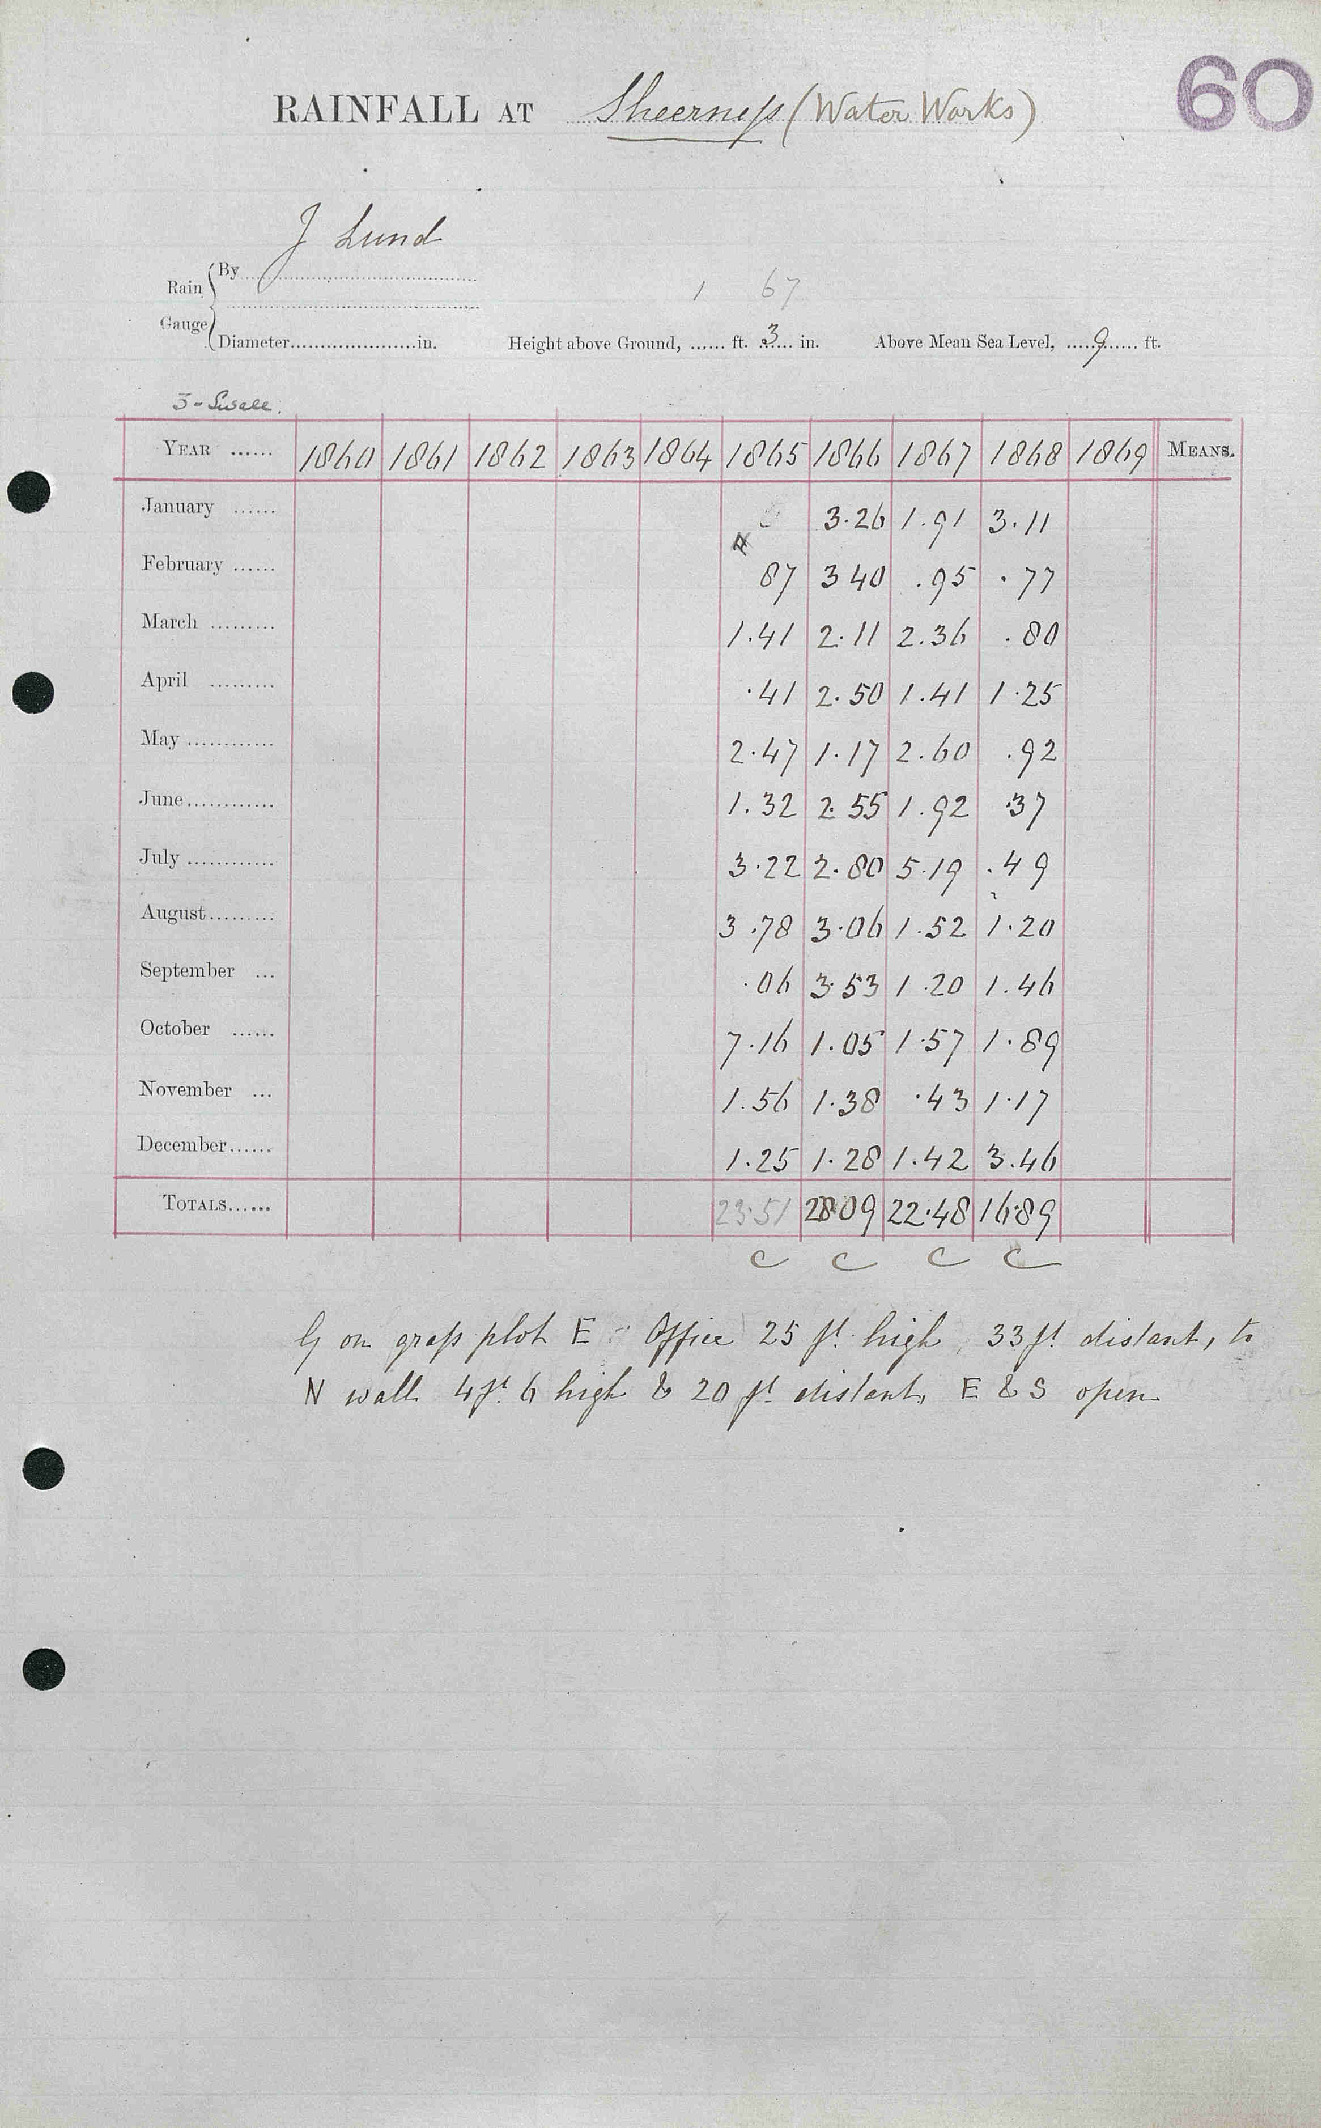 60
RAINFALL AT Sheerness (Water Works)
J Lund
Rain Gauge By
1 67
Diameter.....................in. Height above Ground, ...... ft. 3 in. Above Mean Sea Level, 9 ft.
YEAR ...... 1860 1861 1862 1863 1864 1865 1866 1867 1868 1869 MEANS.
January ...... 3.26 1.91 3.11
February ...... 87 3 40 .95 .77
March ......... 1.41 2.11 2.36 .80
April ......... .41 2.50 1.41 1.25
May ............ 2.47 1.17 2.60 .92
June............ 1.32 2.55 1.92 .37
July ............ 3.22 2.80 5.19 .49
August......... 3.78 3.06 1.52 1.20
September ... .06 3.53 1.20 1.46
October ...... 7.16 1.05 1.57 1.89
November ... 1.56 1.38 .43 1.17
December...... 1.25 1.28 1.42 3.46
TOTALS...... 23.51 28.09 22.48 16.89
C C C C
G on grass plot E Office 25 ft high, 33 ft distant, to
N wall 4 ft. 6 high & 20 ft distant, E & S open